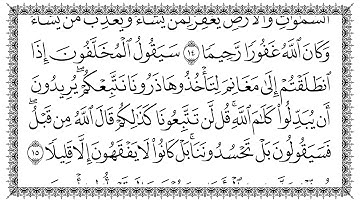 السَّمَٰوَٰتِ وَالْأَرْضِ يَغْفِرُ لِمَن يَشَآءُ وَيُعَذِّبُ مَن يَشَآءُ
وَكَانَ ٱللَّهُ غَفُورًا رَّحِيمًا ١٤ سَيَقُولُ ٱلْمُخَلَّفُونَ إِذَا
ٱنطَلَقْتُمْ إِلَىٰ مَغَانِمَ لِتَأْخُذُوهَا ذَرُونَا نَتَّبِعْكُمْ ۖ يُرِيدُونَ
أَن يُبَدِّلُوا۟ كَلَٰمَ ٱللَّهِ ۚ قُل لَّن تَتَّبِعُونَا كَذَٰلِكُمْ قَالَ ٱللَّهُ مِن قَبْلُ ۖ
فَسَيَقُولُونَ بَلْ تَحْسُدُونَنَا ۚ بَلْ كَانُوا۟ لَا يَفْقَهُونَ إِلَّا قَلِيلًا ١٥